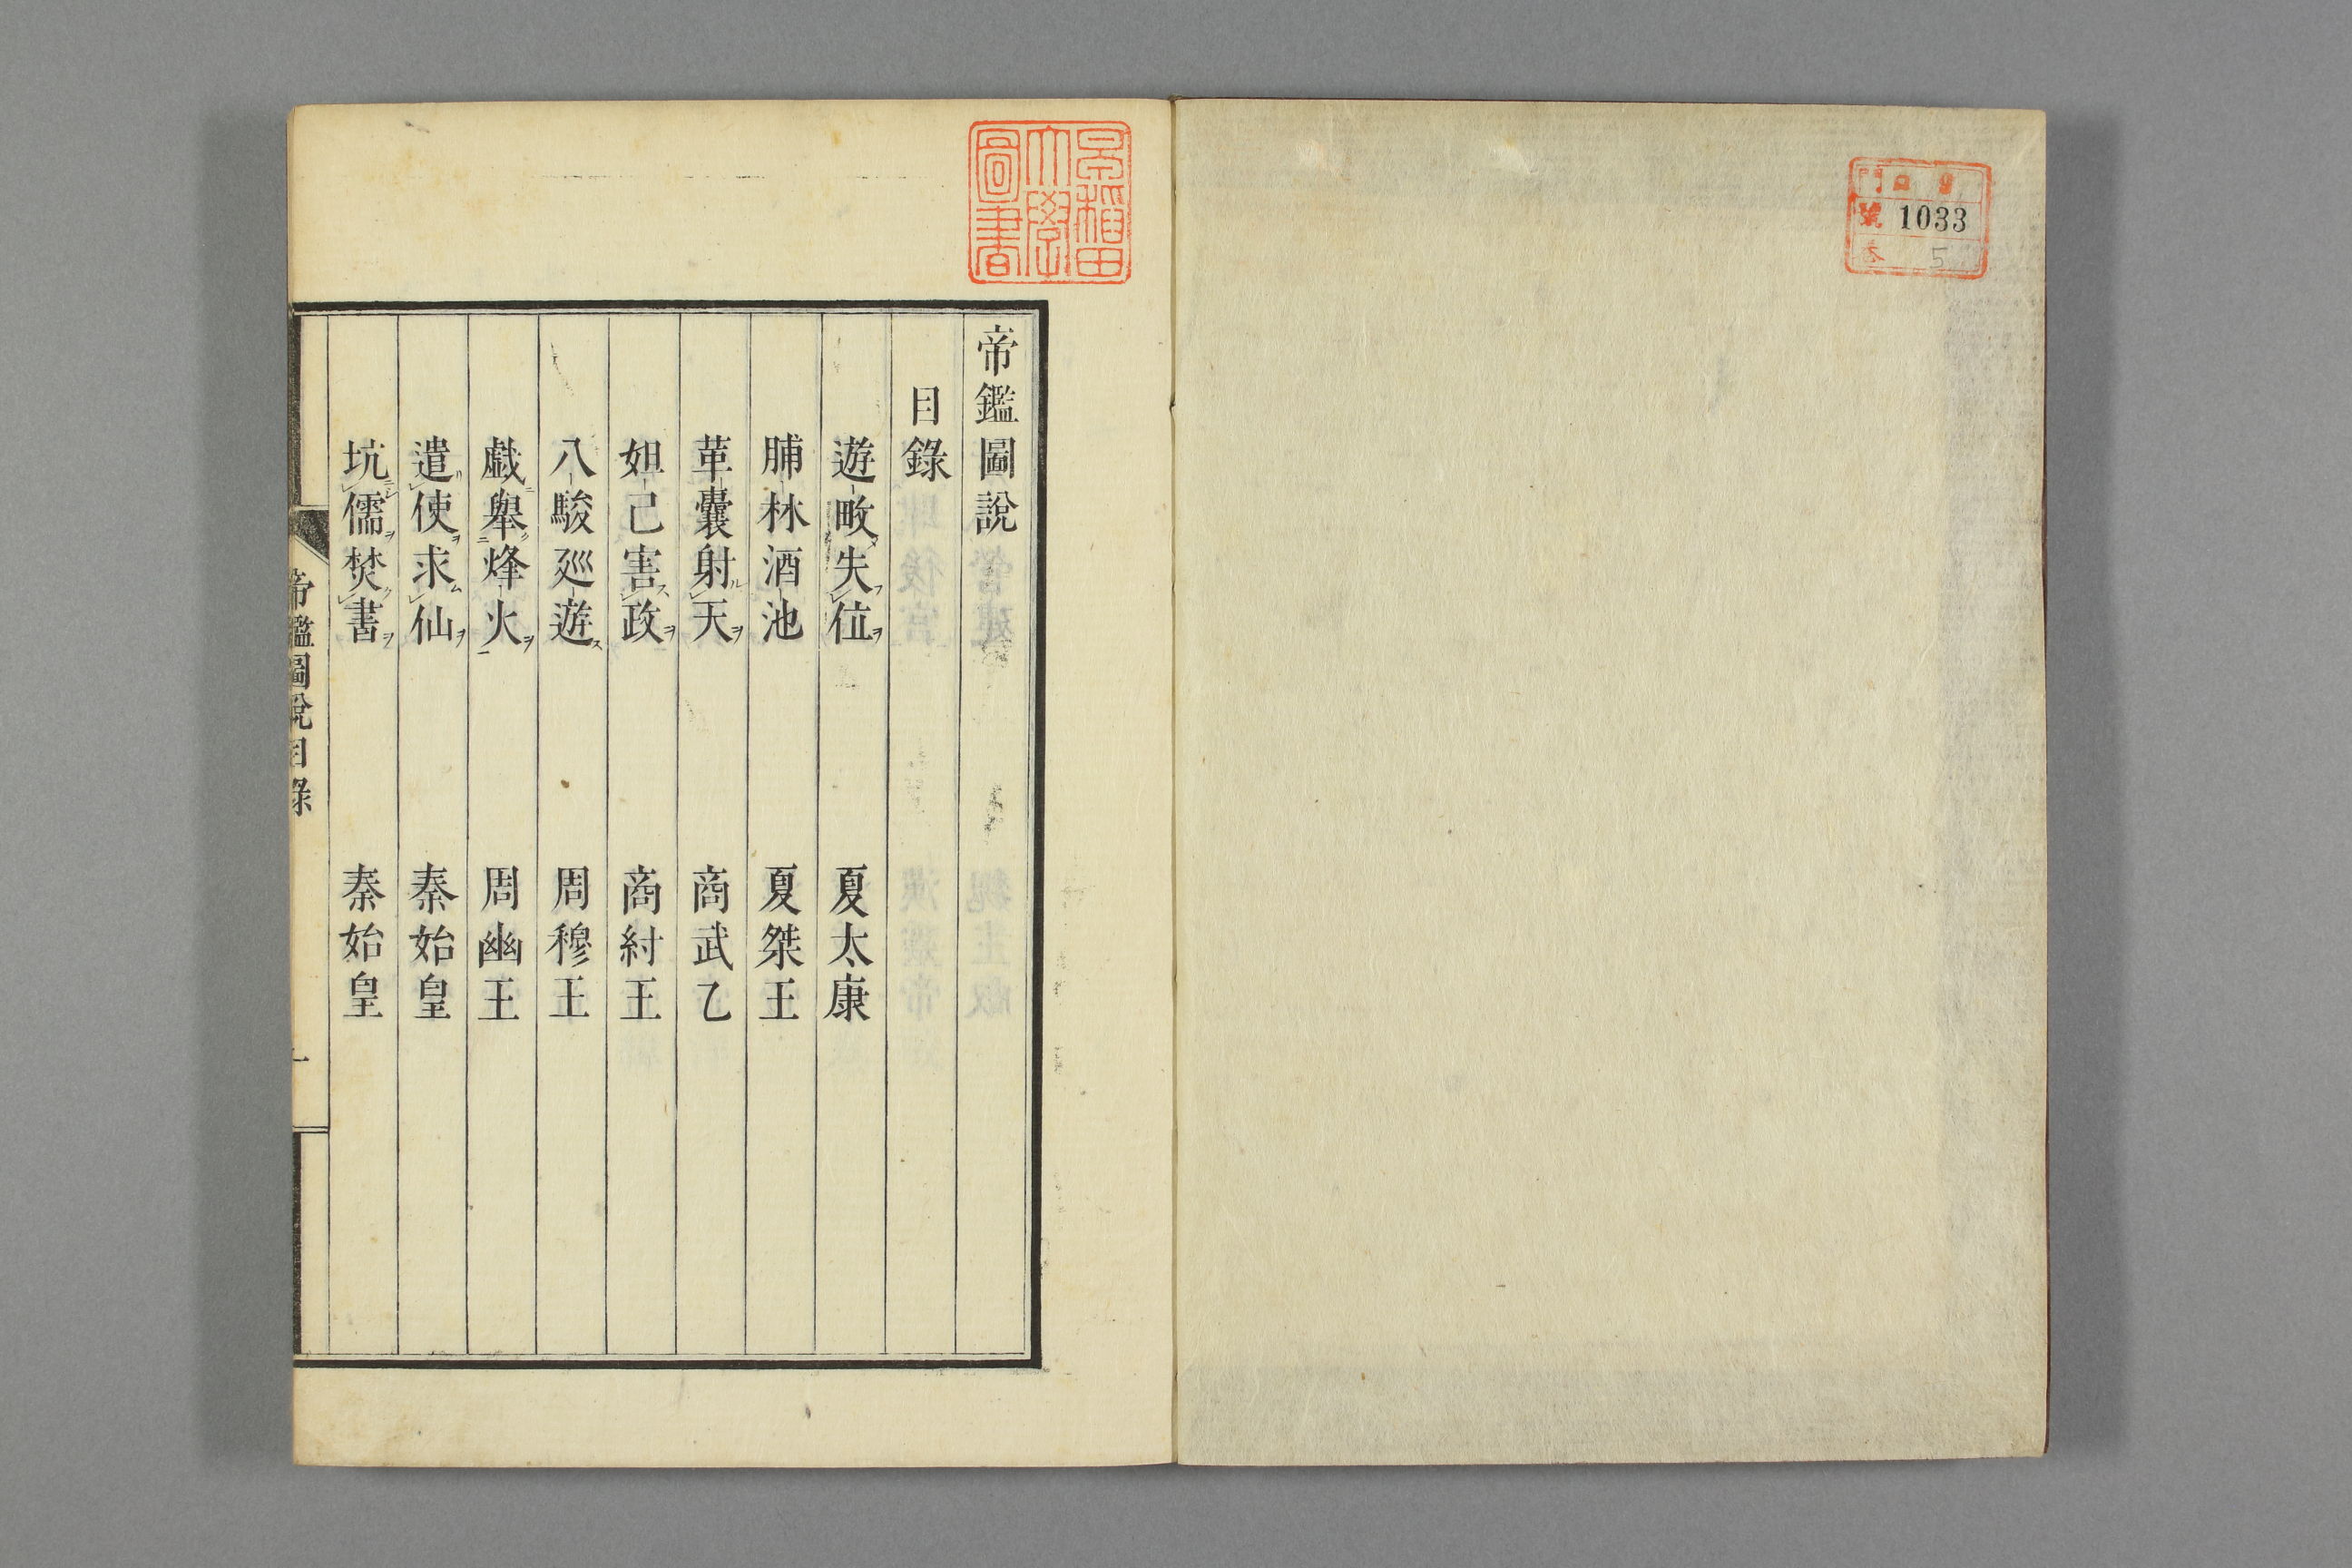 門 ロ 9
號 1033
巻 5
早稲田
大學
圖書
帝鑑圖說
目錄
遊畋失位 夏太康
脯林酒池 夏桀王
革囊射天 商武乙
妲己害政 商紂王
八駿廵遊 周穆王
戯舉烽火 周幽王
遣使求仙 秦始皇
坑儒焚書 秦始皇
帝鑑圖說目錄 一